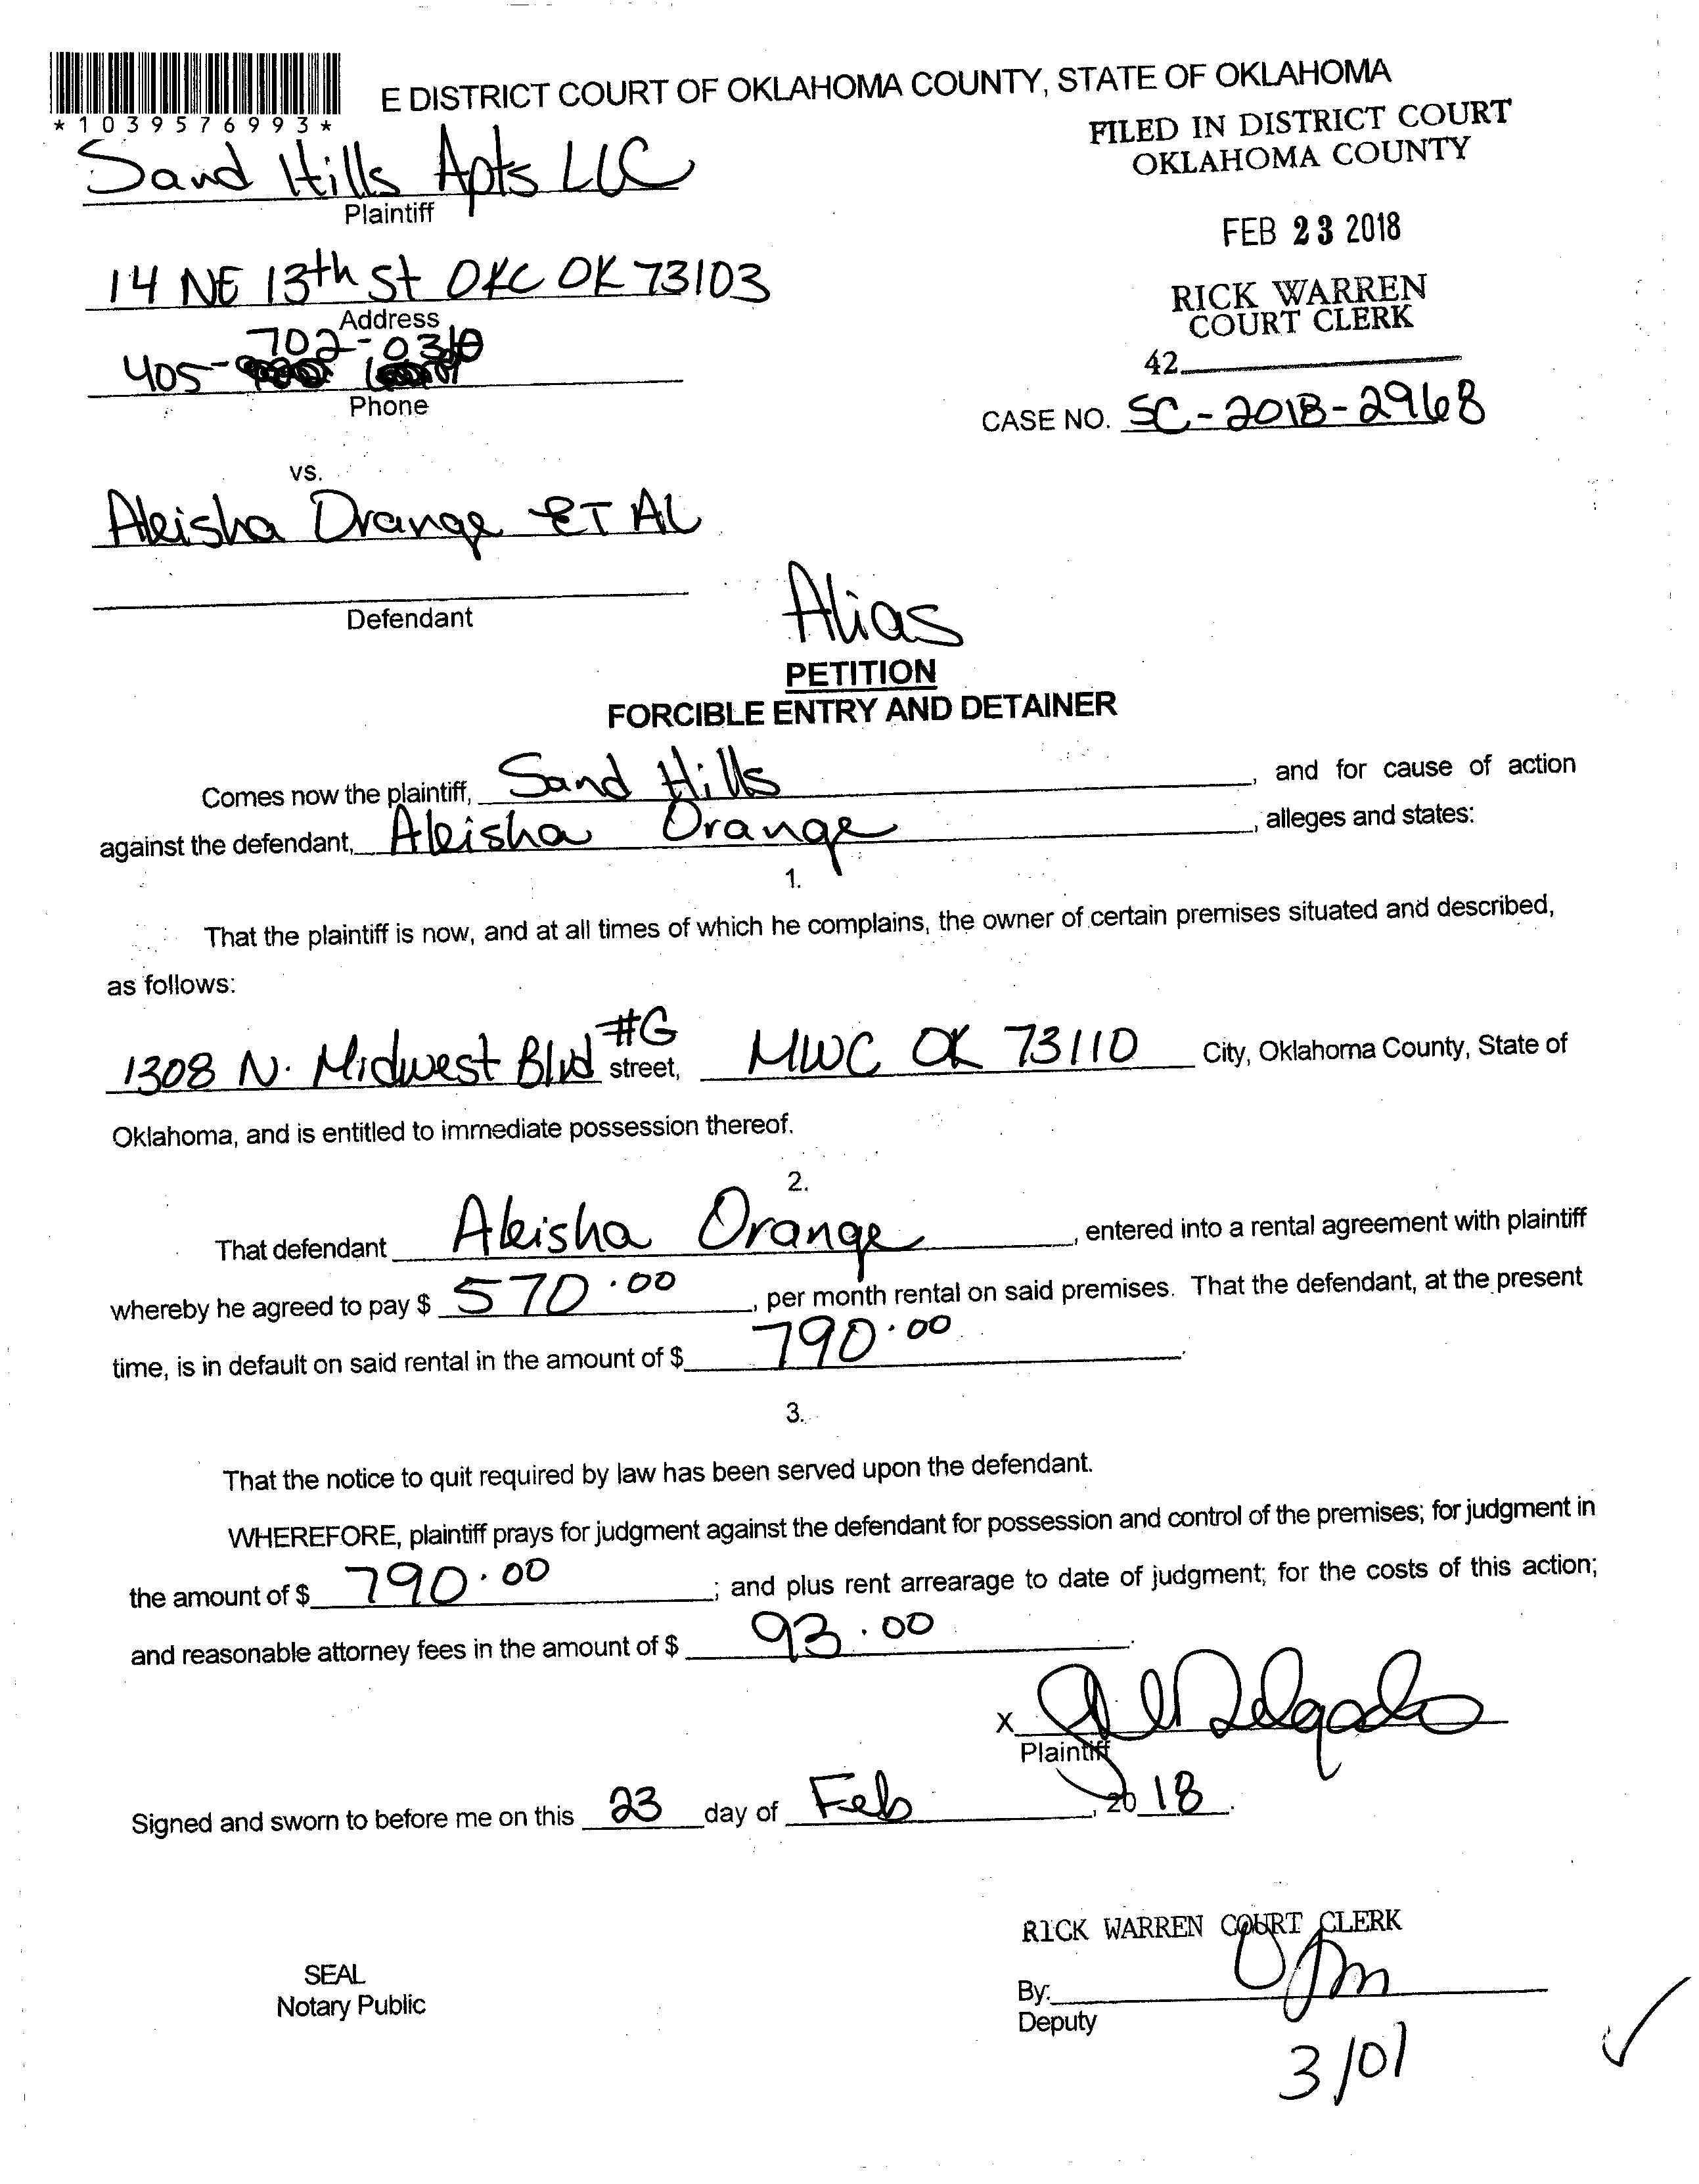 *1039576993*
E DISTRICT COURT OF OKLAHOMA COUNTY, STATE OF OKLAHOMA
FILED IN DISTRICT COURT
OKLAHOMA COUNTY
Sand Hills Apts LLC
Plaintiff
FEB 23 2018
14 NE 13th St OKC OK 73103
Address
RICK WARREN
COURT CLERK
702-0310
405-
Phone
42
CASE NO. SC-2018-2968
vs.
Aleisha Orange ET AL
Defendant
Alias
PETITION
FORCIBLE ENTRY AND DETAINER
Comes now the plaintiff, Sand Hills, and for cause of action
against the defendant, Aleisha Orange, alleges and states:
1.
That the plaintiff is now, and at all times of which he complains, the owner of certain premises situated and described,
as follows:
1308 N. Midwest Blvd #G street, MWC OK 73110 City, Oklahoma County, State of
Oklahoma, and is entitled to immediate possession thereof.
2.
That defendant Aleisha Orange, entered into a rental agreement with plaintiff
whereby he agreed to pay $ 570.00, per month rental on said premises. That the defendant, at the present
time, is in default on said rental in the amount of $ 790.00.
3.
That the notice to quit required by law has been served upon the defendant.
WHEREFORE, plaintiff prays for judgment against the defendant for possession and control of the premises; for judgment in
the amount of $ 790.00; and plus rent arrearage to date of judgment; for the costs of this action;
and reasonable attorney fees in the amount of $ 93.00.
X Delgado
Plaintiff
Signed and sworn to before me on this 23 day of Feb, 2018.
RICK WARREN COURT CLERK
SEAL
Notary Public
By:
Deputy
3/01